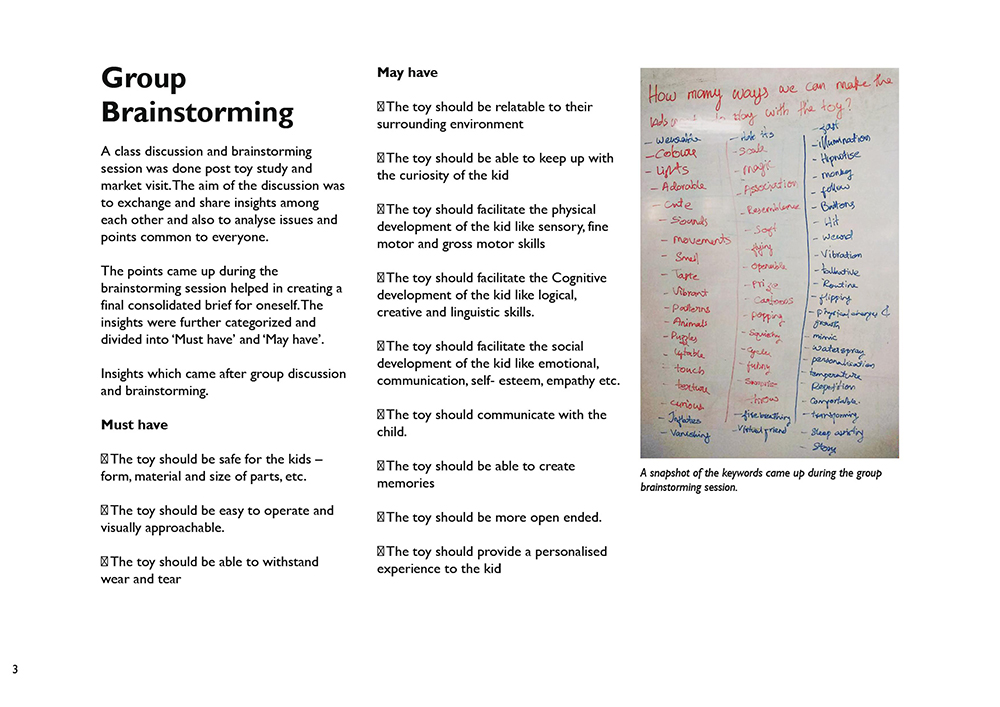 Group
Brainstorming
A class discussion and brainstorming
session was done post toy study and
market visit. The aim of the discussion was
to exchange and share insights among
each other and also to analyse issues and
points common to everyone.
The points came up during the
brainstorming session helped in creating a
final consolidated brief for oneself. The
insights were further categorized and
divided into ‘Must have’ and ‘May have’.
Insights which came after group discussion
and brainstorming.
Must have
The toy should be safe for the kids –
form, material and size of parts, etc.
The toy should be easy to operate and
visually approachable.
The toy should be able to withstand
wear and tear
May have
The toy should be relatable to their
surrounding environment
The toy should be able to keep up with
the curiosity of the kid
The toy should facilitate the physical
development of the kid like sensory, fine
motor and gross motor skills
The toy should facilitate the Cognitive
development of the kid like logical,
creative and linguistic skills.
The toy should facilitate the social
development of the kid like emotional,
communication, self- esteem, empathy etc.
The toy should communicate with the
child.
The toy should be able to create
memories
The toy should be more open ended.
The toy should provide a personalised
experience to the kid
How many ways we can make the
play with the toy?
- Wearable
- Colour
- Lights
- Adorable
- Cute
- Sounds
- movements
- Smell
- Taste
- Vibrant
- Patterns
- Animals
- Puzzles
- touch
- texture
- curious
- Inflates
- Vanishing
- Scale
- magic
- Association
- Resemblence
- Soft
- flying
- Openable
- Prize
- Cartoons
- Popping
- Squishy
- throw
- fire breathing
- Virtual friend
- illumination
- Hipnotise
- monkey
- follow
- Buttons
- Hit
- Weird
- Vibration
- talkative
- Routine
- flipping
- Physical changes &
growth
- mimic
- Water spray
- personalication
- temperature
- Repetition
- Comfortable
- transforming
- Sleep assisting
- Story
A snapshot of the keywords came up during the group
brainstorming session.
3